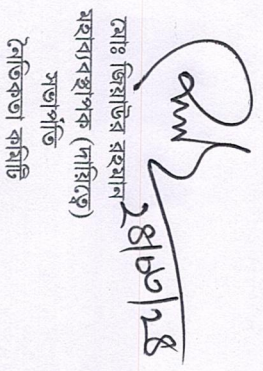 মোঃ জিয়াউর রহমান
মহাব্যবস্থাপক (দায়িত্বে)
সভাপতি
নৈতিকতা কমিটি